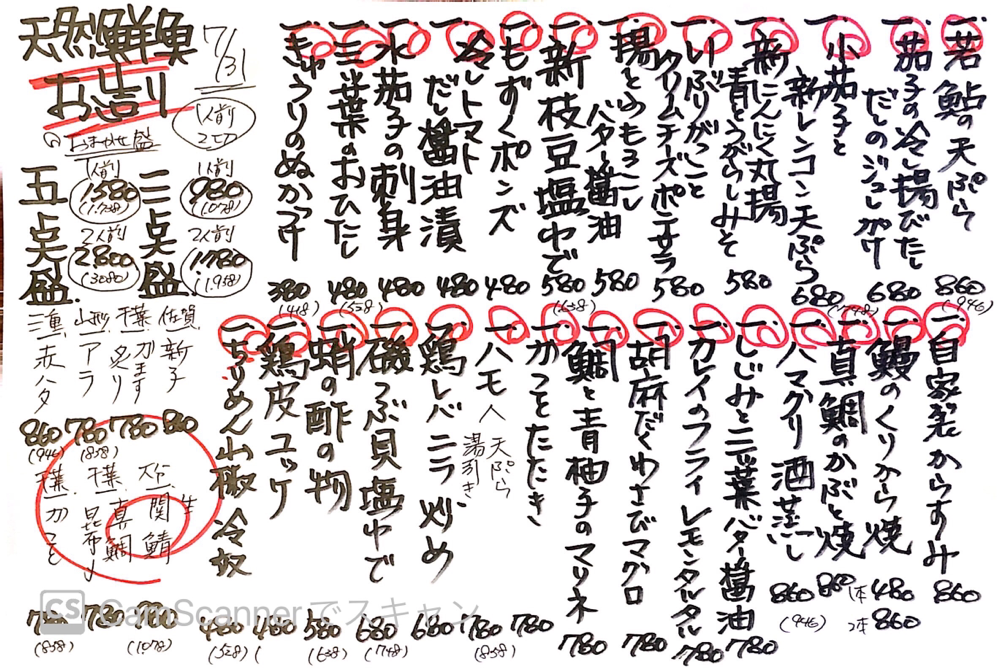 天然鮮魚
お造り
7/31
1人前
2切
おまかせ盛
三点盛
1人前
980
(1.078)
2人前
1.780
(1.958)
五点盛
1人前
1.580
(1.738)
2人前
2.800
(3080)
佐賀 新子 880
千葉 かます 炙り 780
山形 アラ 780
(858)
三重 赤ハタ 860
(946)
大分 関鯖 生 980
(1.078)
千葉 真鯛 昆布〆 780
千葉 かつを 780
(858)
一.若鮎の天ぷら 860
(946)
一.茄子の冷し揚げびたし
だしのジュレがけ 680
一.小茄子と
新レンコン天ぷら 680
(748)
一.新にんにく丸揚
青とうがらしみそ 580
一.いぶりがっこと
クリームチーズポテサラ 580
一.揚とうもろこし
バターと醤油 580
一.新枝豆塩ゆで 580
(638)
一.もずくポンズ 480
一.冷しトマト
だし醤油漬 480
一.水茄子の刺身 480
一.三ッ葉のおひたし 480
(528)
一.きゅうりのぬかづけ 380
(418)
一.自家製からすみ 860
一.鰻のくりから焼 1本 480
2本 860
一.真鯛のかぶと焼 860
一.ハマグリ酒蒸し 860
(946)
一.しじみと三ッ葉バター醤油 780
一.カレイのフライ レモンタルタル 780
一.胡麻だくわさびマグロ 780
一.鯛と青柚子のマリネ 780
一.かつをたたき 780
一.ハモ 天ぷら
湯引き 780
(858)
一.鶏レバニラ炒め 680
一.磯つぶ貝塩ゆで 680
(748)
一.蛸の酢の物 580
(638)
一.鶏皮ユッケ 480
一.ちりめん山椒冷奴 480
(528)
CS CamScannerでスキャン